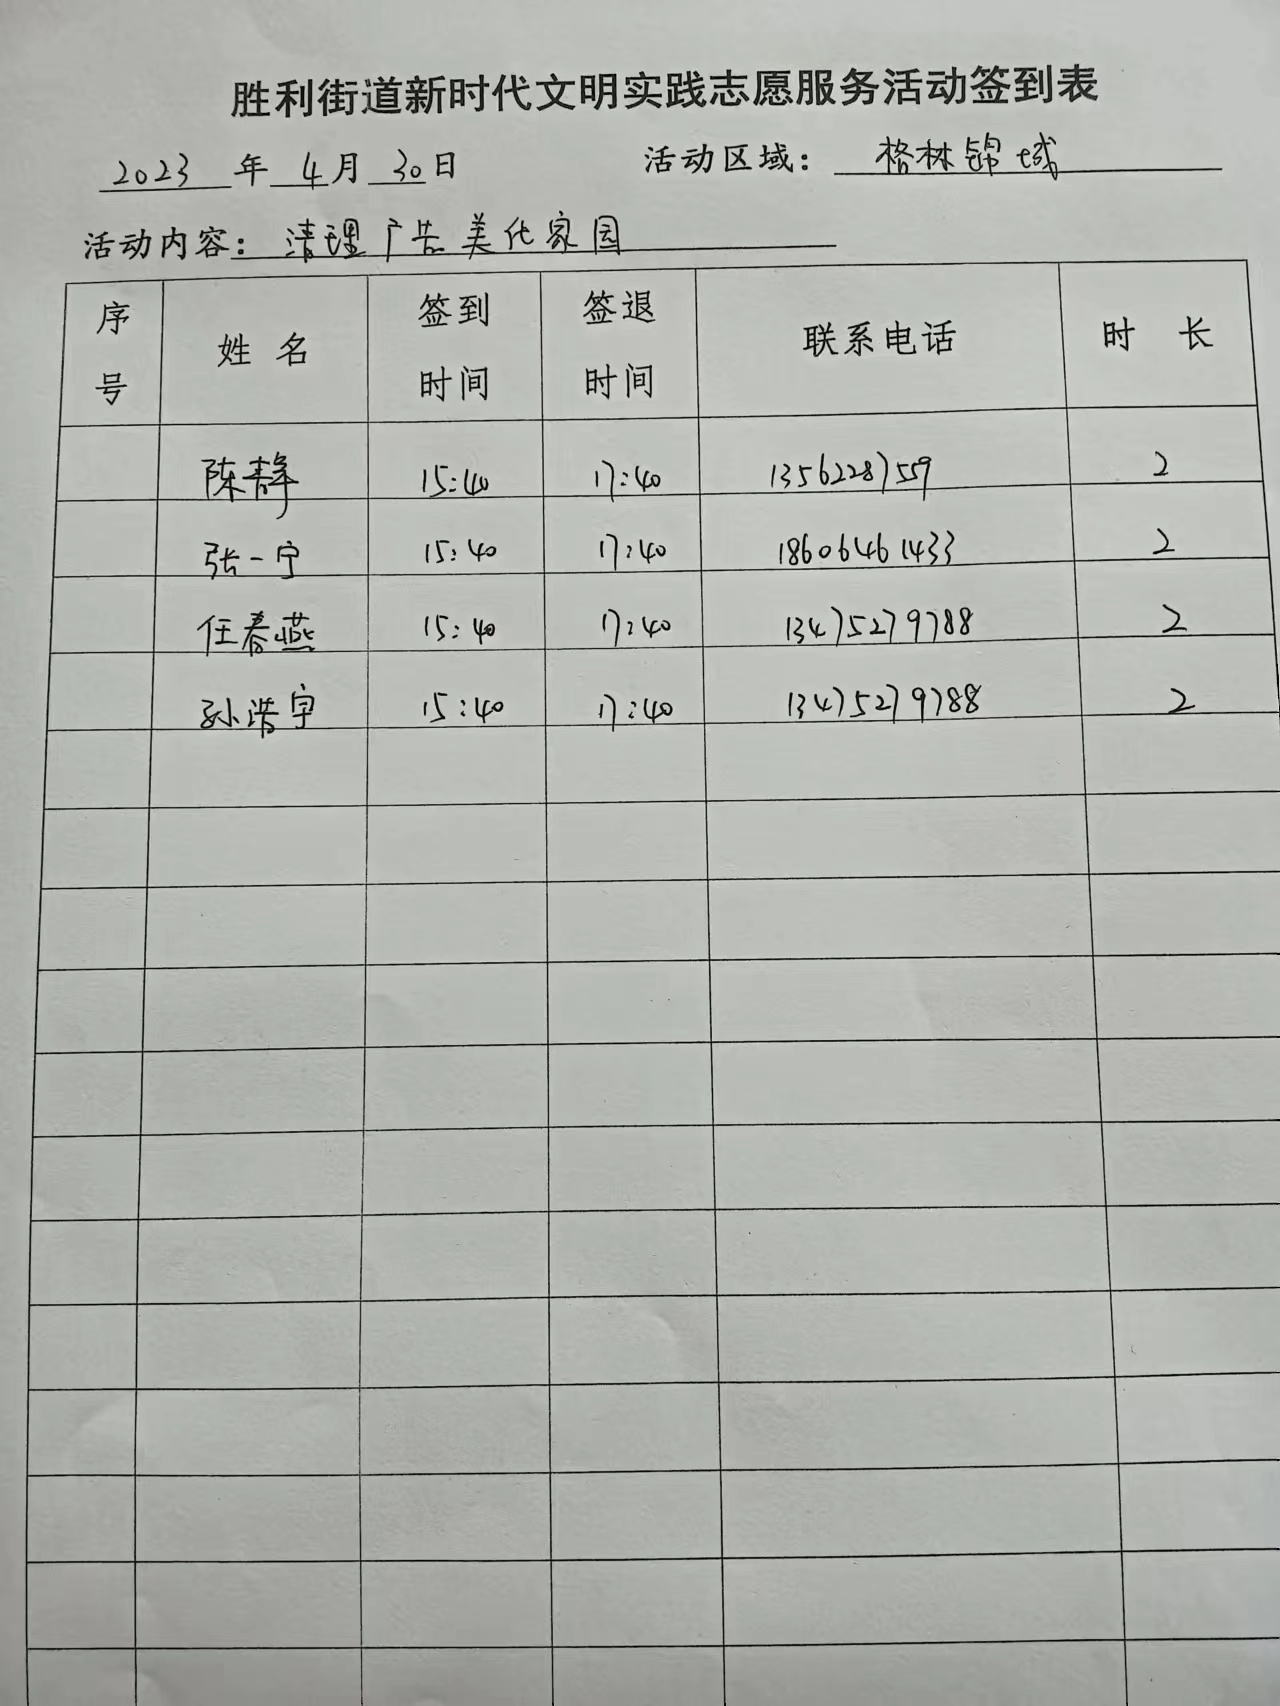 胜利街道新时代文明实践志愿服务活动签到表
2023 年 4 月 30 日 活动区域: 格林锦域
活动内容: 清理广告美化家园
序号 姓名 签到时间 签退时间 联系电话 时长
陈静 15:40 17:40 13562287559 2
张一宁 15:40 17:40 18606461433 2
任春燕 15:40 17:40 13475279788 2
孙浩宇 15:40 17:40 13475279788 2